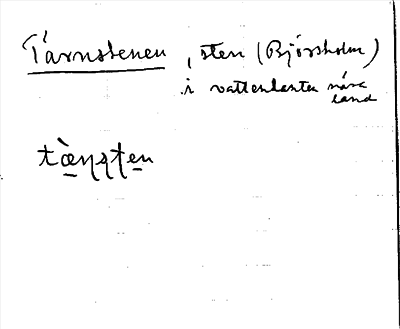 Tärnstenen, sten (Björsholm)
i vattenkanten nära
land
tæ̀ɳʂʈen